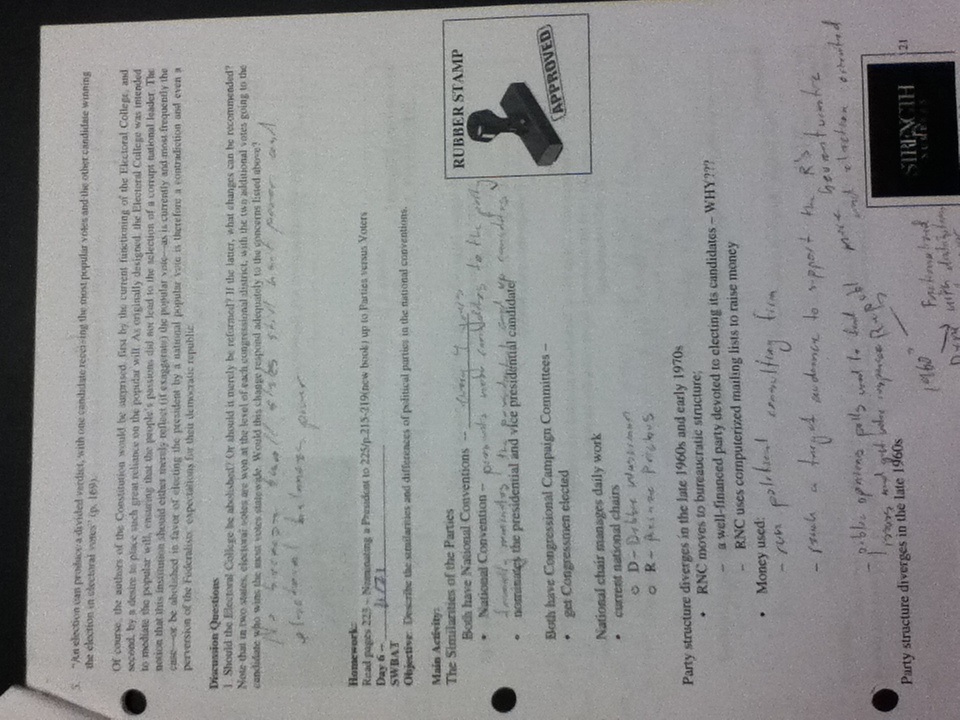 5. "An election can produce a divided verdict, with one candidate receiving the most popular votes and the other candidate winning
the election in electoral votes" (p. 169).
Of course, the authors of the Constitution would be surprised, first by the current functioning of the Electoral College, and
second, by a desire to place such great reliance on the popular will. As originally designed, the Electoral College was intended
to mediate the popular will, ensuring that the people's passions did not lead to the selection of a corrupt national leader. The
notion that this institution should either merely reflect (if exaggerate) the popular vote—as is currently and most frequently the
case—or be abolished in favor of electing the president by a national popular vote is therefore a contradiction and even a
perversion of the Federalists' expectations for their democratic republic.
Discussion Questions
1. Should the Electoral College be abolished? Or should it merely be reformed? If the latter, what changes can be recommended?
Note that in two states, electoral votes are won at the level of each congressional district, with the two additional votes going to the
candidate who wins the most votes statewide. Would this change respond adequately to the concerns listed above?
No because small states still have power and
electoral balances power
Homework:
Read pages 223 – Nominating a President to 225/p.215-219(new book) up to Parties versus Voters
Day 6 –
SWBAT
Objective: Describe the similarities and differences of political parties in the national conventions.
Main Activity:
The Similarities of the Parties
Both have National Conventions – every 4 years
• National Convention – to the party
RUBBER STAMP
• nominates the presidential and vice presidential candidate
APPROVED
Both have Congressional Campaign Committees –
• get Congressmen elected
National chair manages daily work
• current national chairs
o D – Debbie Wasserman
o R – Reince Priebus
Party structure diverges in the late 1960s and early 1970s
• RNC moves to bureaucratic structure;
– a well-financed party devoted to electing its candidates – WHY???
– RNC uses computerized mailing lists to raise money
• Money used:
– run political consulting firm
– reach a target audience to support the R's
– public opinions polls used to find
issues and get voter response
more
and election oriented
Party structure diverges in the late 1960s
STRENGTH
IN
NUMBERS
21
1960
Factionalized
with